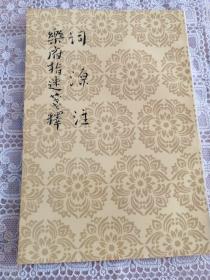 词源注
樂府指迷箋釋